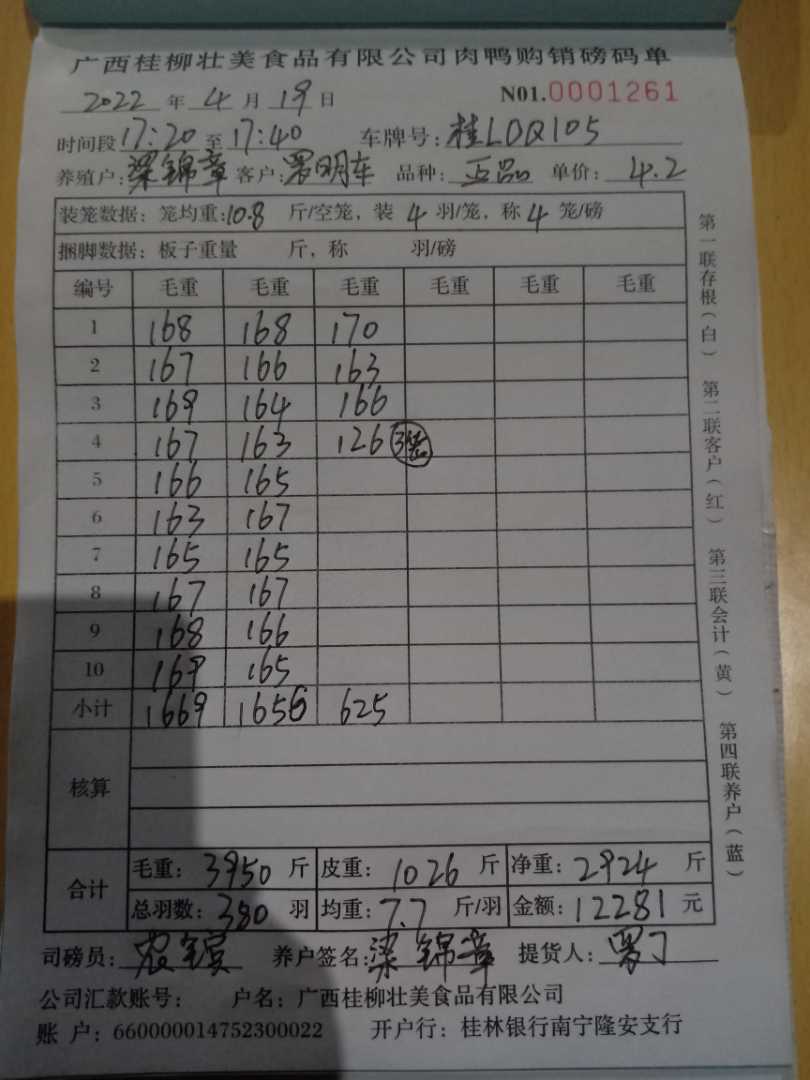 广西桂柳壮美食品有限公司肉鸭购销磅码单
2022 年 4 月 19 日 N01.0001261
时间段 17:20 至 17:40 车牌号: 桂LDQ105
养殖户: 梁锦章 客户: 罗明车 品种: 正品 单价: 4.2
装笼数据: 笼均重: 10.8 斤/空笼, 装 4 羽/笼, 称 4 笼/磅
捆脚数据: 板子重量 斤, 称 羽/磅
编号 毛重 毛重 毛重 毛重 毛重 毛重
1 168 168 170
2 167 166 163
3 169 164 166
4 167 163 126 3笼
5 166 165
6 163 167
7 165 165
8 167 167
9 168 166
10 169 165
小计 1669 1656 625
核算
合计 毛重: 3950 斤 皮重: 1026 斤 净重: 2924 斤
总羽数: 380 羽 均重: 7.7 斤/羽 金额: 12281 元
司磅员: 养户签名: 梁锦章 提货人:
公司汇款账号: 户名: 广西桂柳壮美食品有限公司
账 户: 660000014752300022 开户行: 桂林银行南宁隆安支行
第一联存根(白) 第二联客户(红) 第三联会计(黄) 第四联养户(蓝)